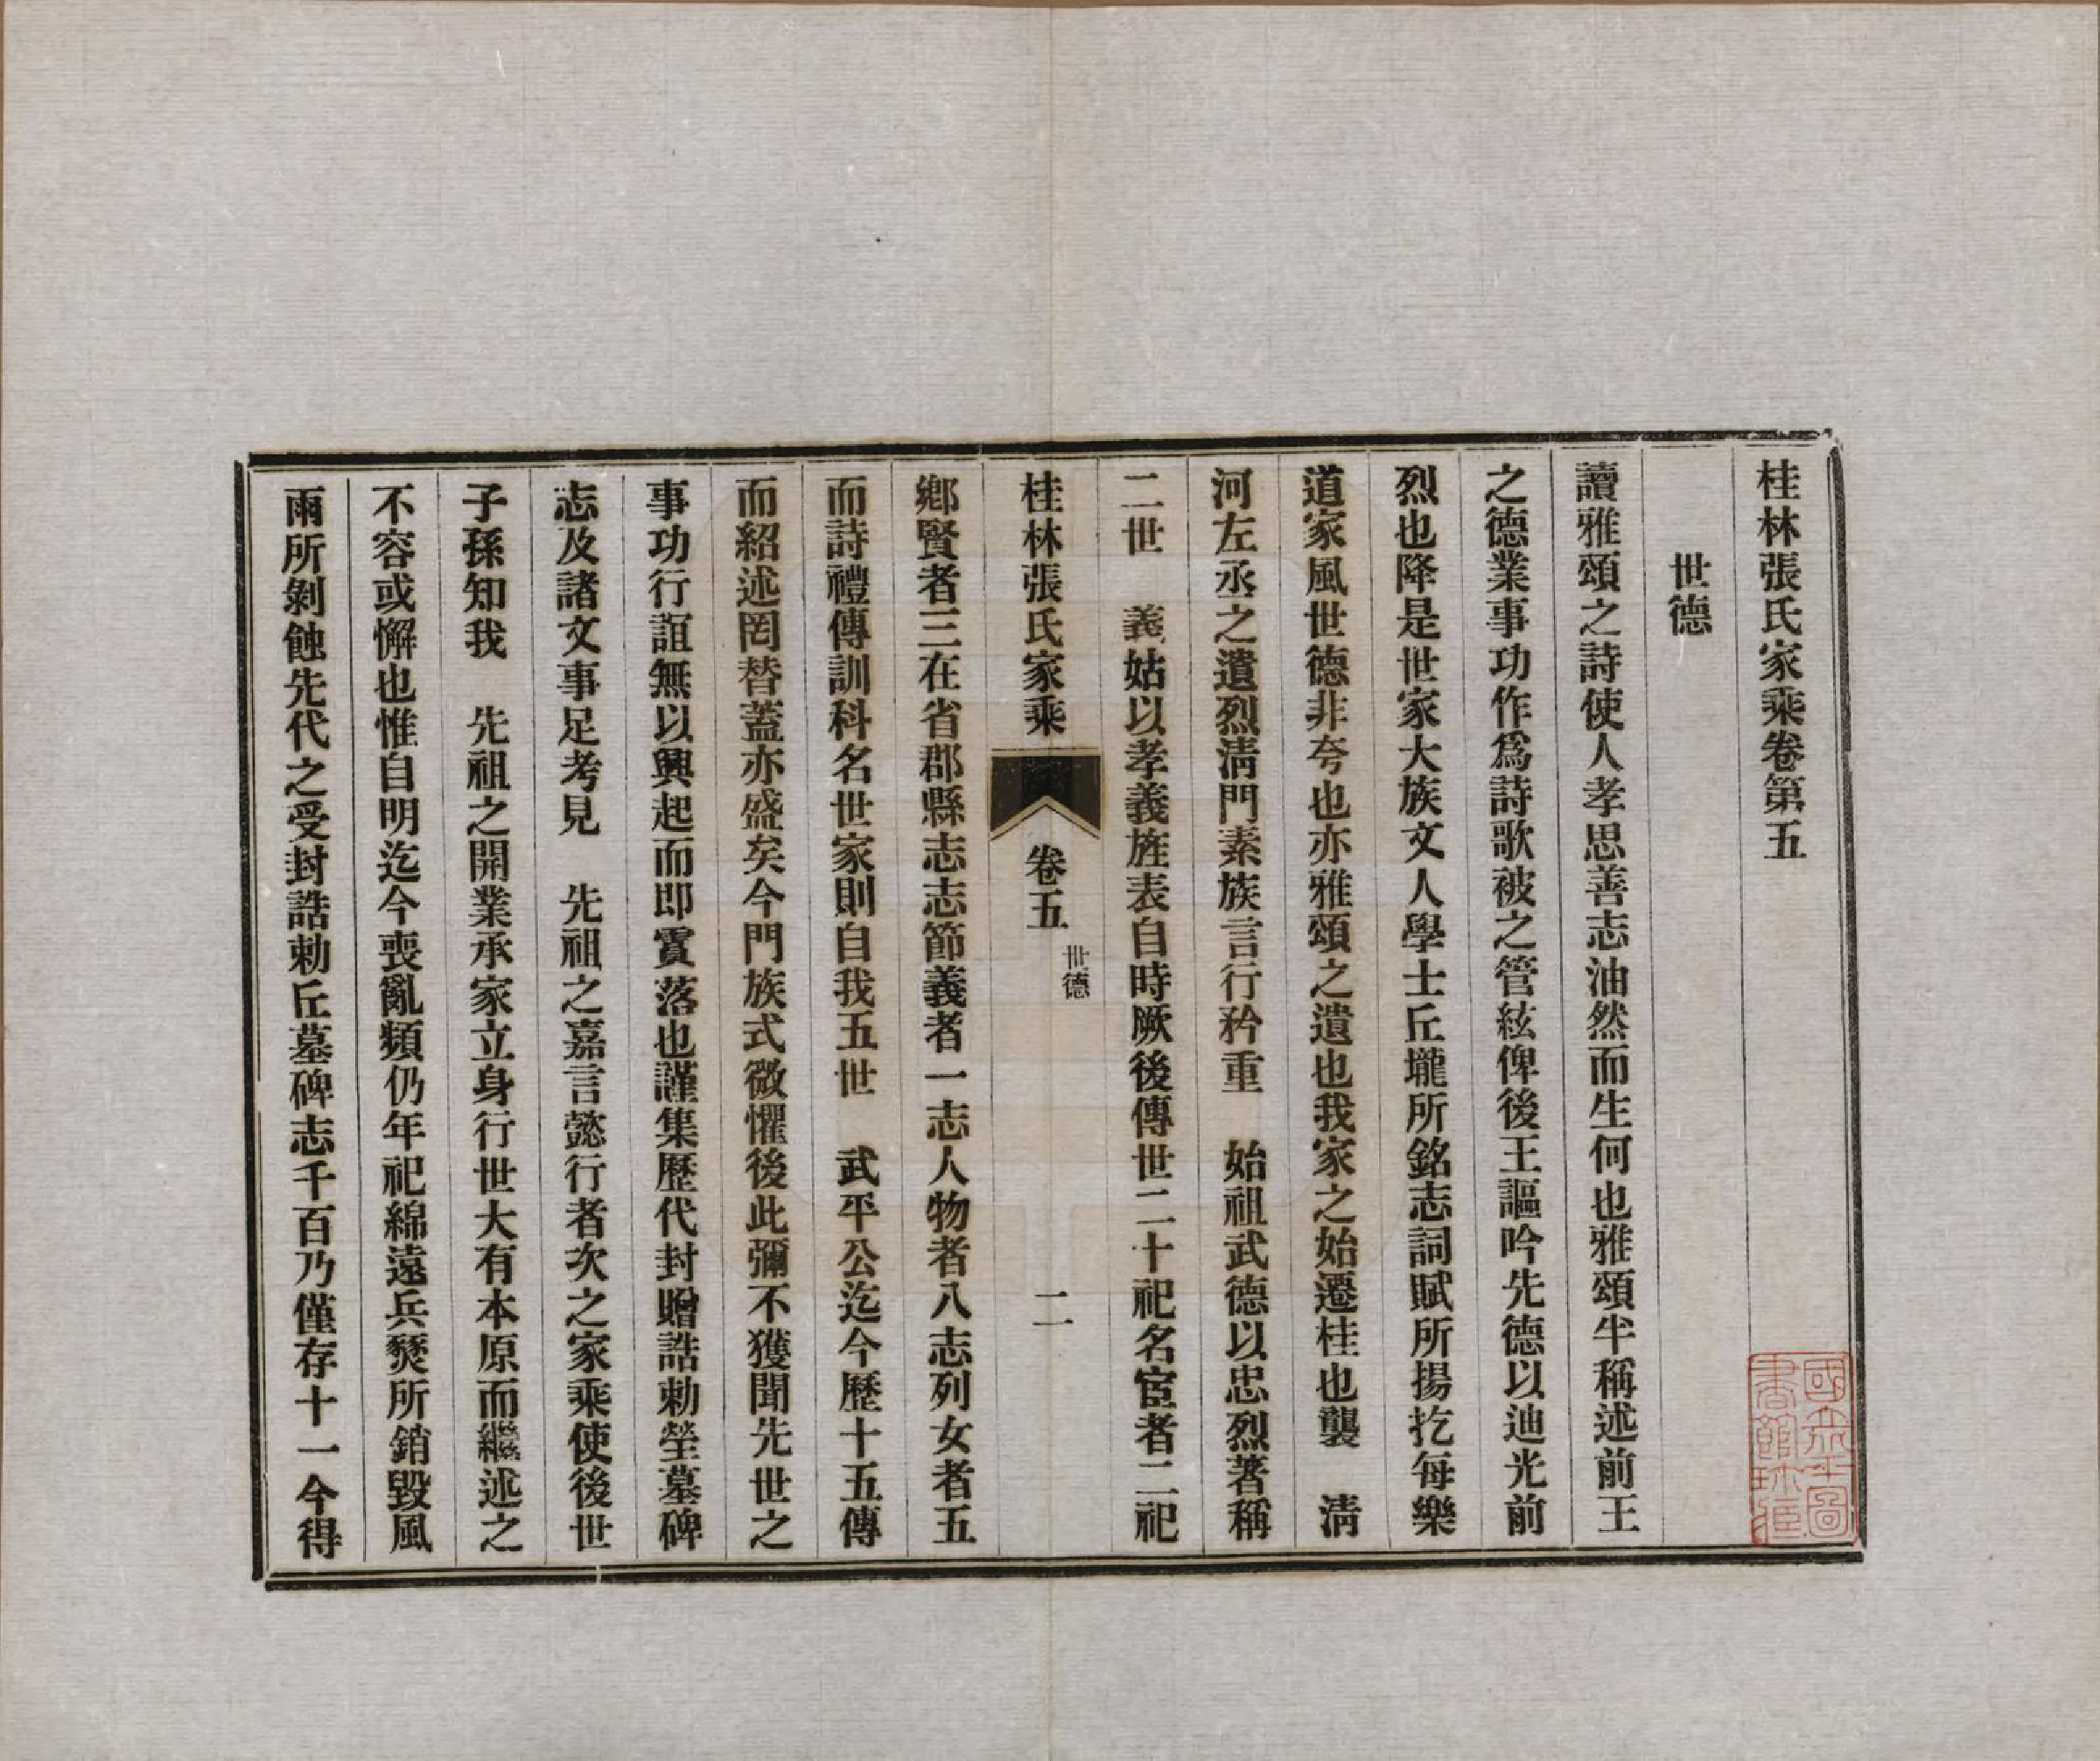 桂林張氏家乘卷第五
世德
讀雅頌之詩使人孝思善志油然而生何也雅頌半稱述前王
之德業事功作爲詩歌被之管絃俾後王謳吟先德以迪光前
烈也降是世家大族文人學士丘壠所銘志詞賦所揚扢每樂
道家風世德非夸也亦雅頌之遺也我家之始遷桂也襲　淸
河左丞之遺烈淸門素族言行矜重　始祖武德以忠烈著稱
二世　義姑以孝義旌表自時厥後傳世二十祀名宦者二祀
桂林張氏家乘　卷五　世德　二
鄉賢者三在省郡縣志志節義者一志人物者八志列女者五
而詩禮傳訓科名世家則自我五世　武平公迄今歷十五傳
而紹述罔替蓋亦盛矣今門族式微懼後此彌不獲聞先世之
事功行誼無以興起而即實落也謹集歷代封贈誥勅塋墓碑
志及諸文事足考見　先祖之嘉言懿行者次之家乘使後世
子孫知我　先祖之開業承家立身行世大有本原而繼述之
不容或懈也惟自明迄今喪亂頻仍年祀綿遠兵燹所銷毀風
雨所剝蝕先代之受封誥勅丘墓碑志千百乃僅存十一今得
國立北平圖書館珍藏